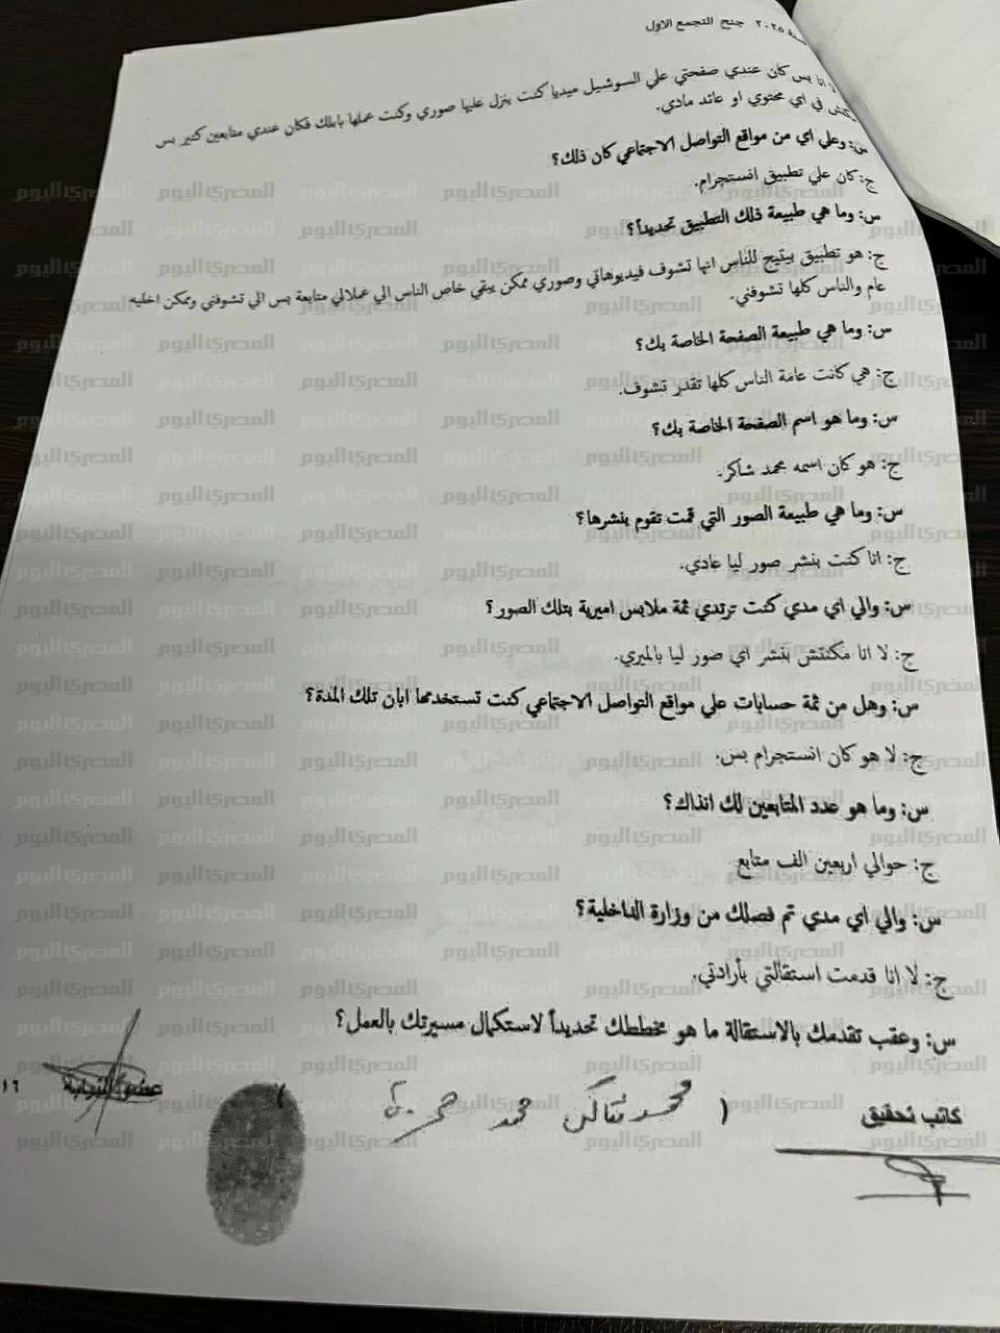 لسنة ٢٠٢٥ جنح التجمع الاول
انا بس كان عندي صفحتي علي السوشيل ميديا كنت بنزل عليها صوري وكنت عملها بابلك فكان عندي متابعين كتير بس
في اي محتوي او عائد مادي.
س: وعلي اي من مواقع التواصل الاجتماعي كان ذلك؟
ج: كان علي تطبيق انستجرام.
س: وما هي طبيعة ذلك التطبيق تحديداً؟
ج: هو تطبيق بيتيح للناس انها تشوف فيديوهاتي وصوري ممكن يبقي خاص الناس الي عملالي متابعة بس الي تشوفني وممكن اخليه
عام والناس كلها تشوفني.
س: وما هي طبيعة الصفحة الخاصة بك؟
ج: هي كانت عامة الناس كلها تقدر تشوف.
س: وما هو اسم الصفحة الخاصة بك؟
ج: هو كان اسمه محمد شاكر.
س: وما هي طبيعة الصور التي قمت تقوم بنشرها؟
ج: انا كنت بنشر صور ليا عادي.
س: والي اي مدي كنت ترتدي ثمة ملابس اميرية بتلك الصور؟
ج: لا انا مكنتش بنشر اي صور ليا بالميري.
س: وهل من ثمة حسابات علي مواقع التواصل الاجتماعي كنت تستخدمها ابان تلك المدة؟
ج: لا هو كان انستجرام بس.
س: وما هو عدد المتابعين لك انذاك؟
ج: حوالي اربعين الف متابع
س: والي اي مدي تم فصلك من وزارة الداخلية؟
ج: لا انا قدمت استقالتي بأرادتي.
س: وعقب تقدمك بالاستقالة ما هو مخططك تحديداً لاستكمال مسيرتك بالعمل؟
كاتب تحقيق
( محمد شاكر محمد
عضو النيابة
١٦
المصري اليوم